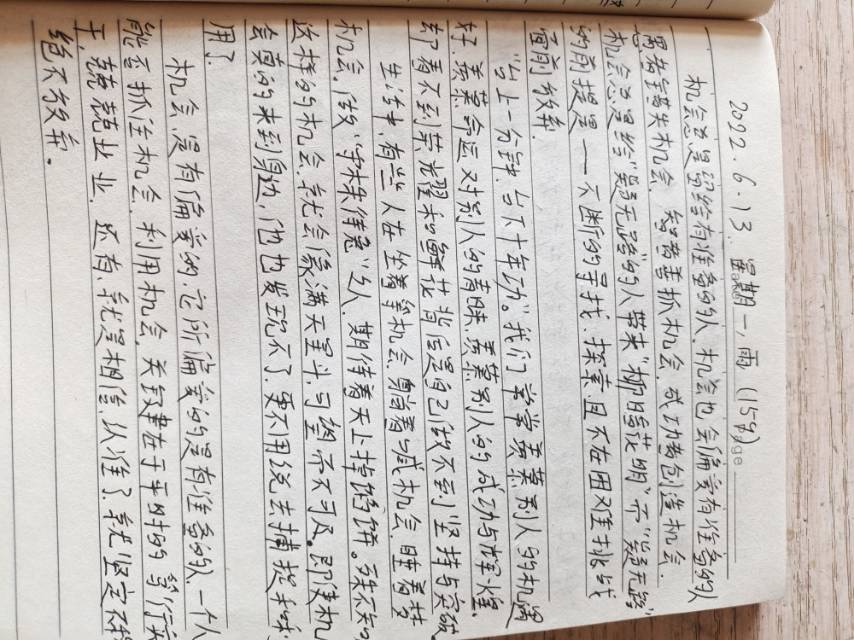 2022.6.13. 星期一,雨 (159)
age
机会总是留给有准备的人,机会也会偏爱有准备的人
愚者错失机会,智者善抓机会,成功者创造机会.
机会总是给"疑无路"的人带来"柳暗花明",而"疑无路"
的前提是——不断的寻找、探索,且不在困难挑战
面前放弃.
"台上一分钟,台下十年功."我们常常羡慕别人的机遇
好,羡慕命运对别人的青睐,羡慕别人的成功与辉煌.
却看不到荣耀和鲜花背后是自己做不到坚持与突破
生活中,有些人在坐着等机会,躺着喊机会,睡着梦
机会,做"守株待兔"之人,期待着天上掉馅饼。殊不知
这样的机会,就会像满天星斗,可望而不可及。即使机
会真的来到身边,他也发现不了,更不用说去捕捉和
用了
机会是有偏爱的,它所偏爱的是有准备的人,一个人
能否抓住机会,利用机会,关键在于平时的
干,兢兢业业,还有,就是相信,认准了,就坚定不移
绝不放弃.